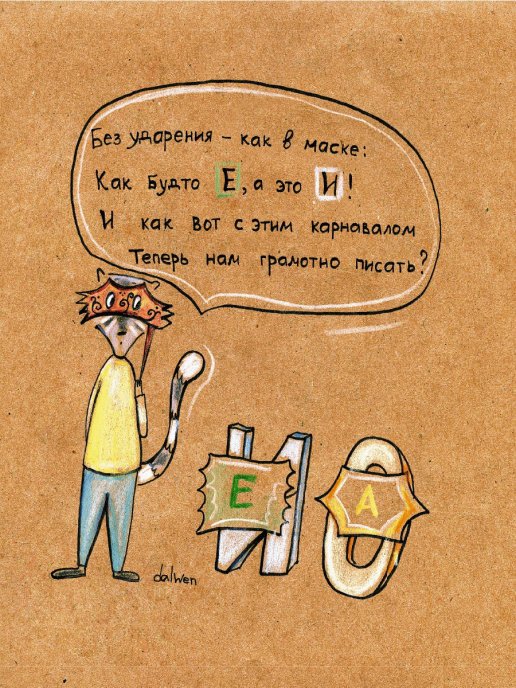 Без ударения – как в маске:
Как будто Е, а это И!
И как вот с этим карнавалом
Теперь нам грамотно писать?
И О
Е А
dalwen